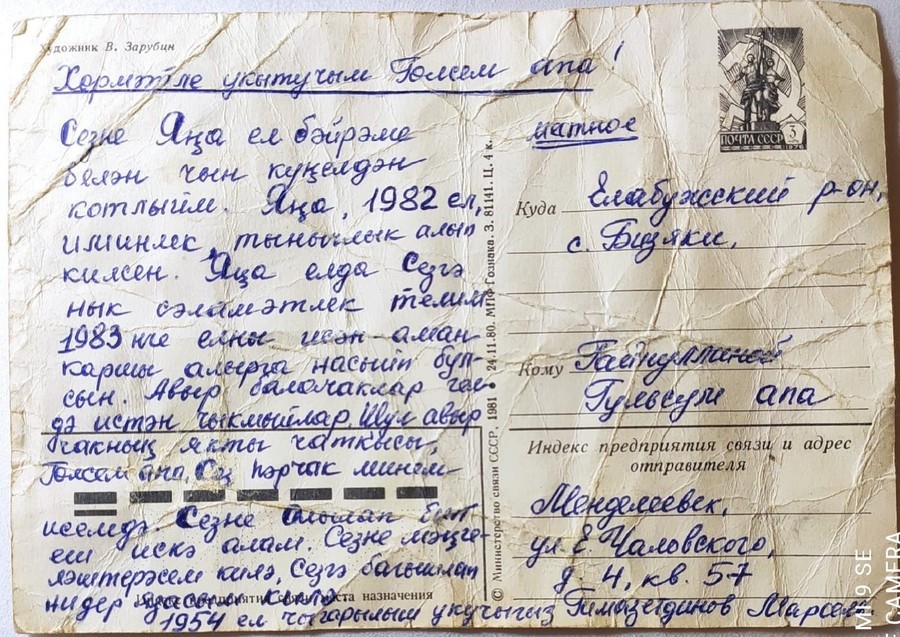 Художник В. Зарубин
Хөрмәтле укытучым Гөлсем апа!
Сезне Яңа ел бәйрәме
белән чын күңелдән
котлыйм. Яңа, 1982 ел,
иминлек, тынычлык алып
килсен. Яңа елда Сезгә
нык сәламәтлек телим.
1983 нче елны исән-аман
каршы алырга насыйп бул-
сын. Авыр балачаклар
дә истән чыкмыйлар. Шул авыр
чакның якты чаткысы,
Гөлсем апа, Сез һәрчак минем
исемдә. Сезне
еш искә алам. Сезне мәңге-
ләштерәсем килә, Сезгә багышлап
нидер язасым килә.
1954 ел чыгарылыш укучыгыз Гимазетдинов Марсель
ПОЧТА СССР 3
1976
матное
Куда Елабужский р-он,
с. Бизяки,
Кому Гайнуллиной
Гульсум апа
Индекс предприятия связи и адрес
отправителя
Менделеевск,
ул. Е. Чаловского,
д. 4, кв. 57
места назначения
© Министерство связи СССР. 1981 • 24.11.80. МПФ Гознака. З. 81141. Ц. 4 к.
MI 9 SE
CAMERA